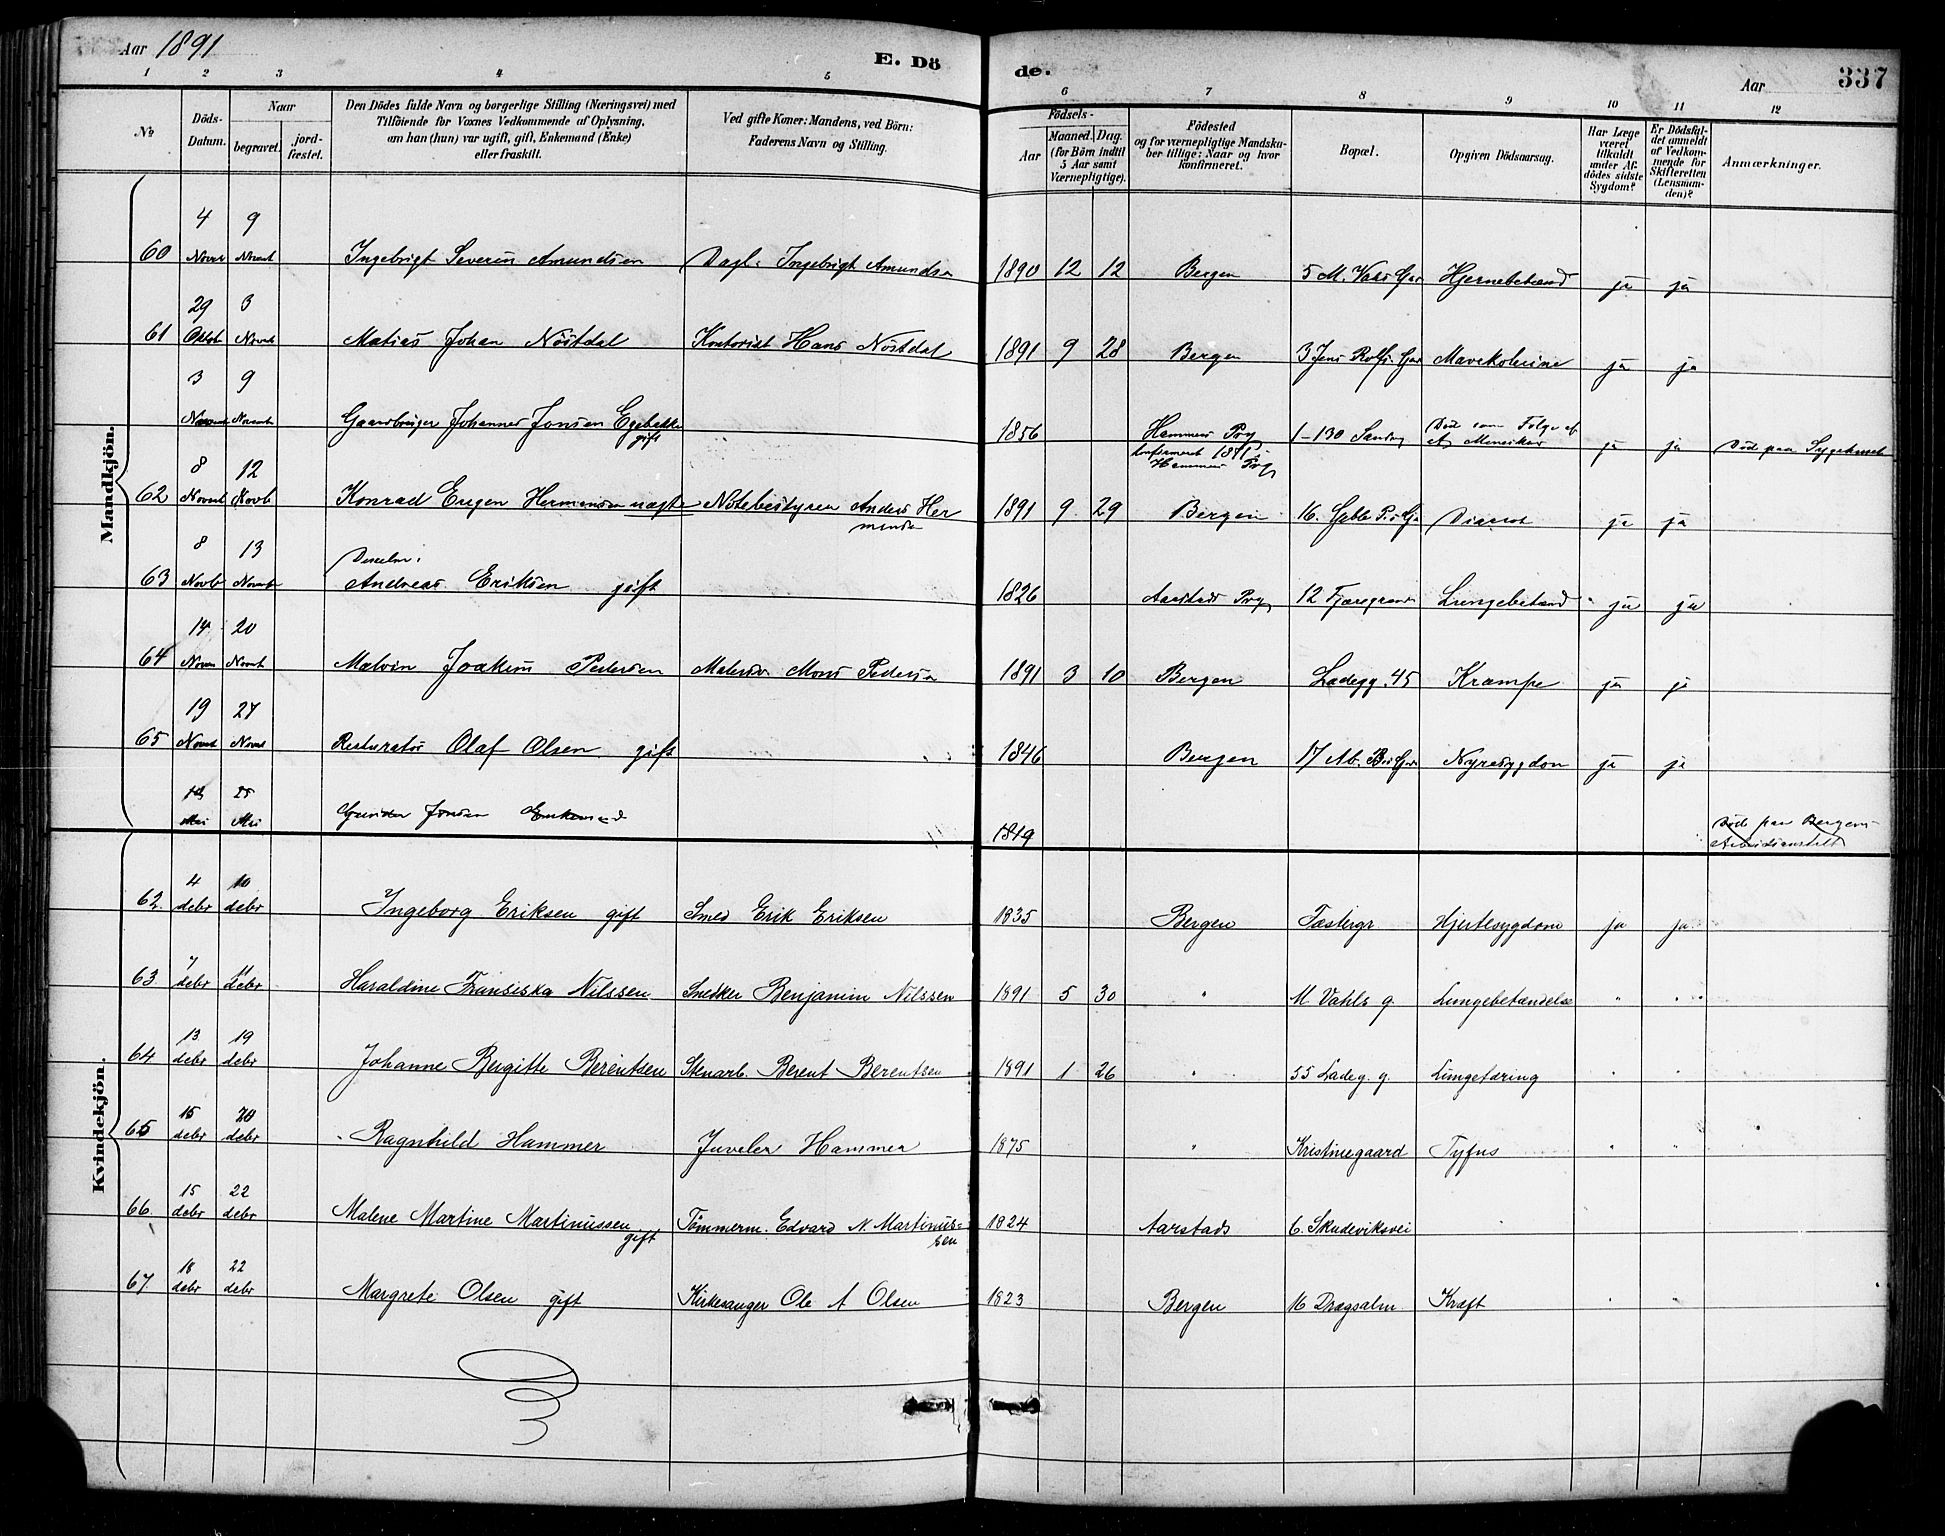 Aar 1891
E. Dö
de.
Aar
337
1 2 3 4 5
6 7 8 9 10 11 12
№
Döds-
Datum.
Naar
begravet.
jord-
fæstet.
Den Dödes fulde Navn og borgerlige Stilling (Næringsvei) med
Tilföiende for Voxnes Vedkommende af Oplysning,
om han (hun) var ugift, gift, Enkemand (Enke)
eller fraskilt.
Ved gifte Koner: Mandens, ved Börn:
Faderens Navn og Stilling.
Födsels-
Aar
Maaned. Dag.
(for Börn indtil
5 Aar samt
Værnepligtige).
Födested
og for værnepligtige Mandska-
ber tillige: Naar og hvor
konfirmeret.
Bopæl.
Opgiven Dödsaarsag.
Har Læge
været
tilkaldt
under Af-
dödes sidste
Sygdom?
Er Dödsfal-
det anmeldt
af Vedkom-
mende for
Skifteretten
(Lensman-
den)?
Anmærkninger.
Mandkjön.
4 9
60 Novbr Novbr Ingebrigt Severin Amundsen Dagl. Ingebrigt Amundsen 1890 12 12 Bergen 5 M. Vahls Hjernebetænd ja ja
29 3
61 Oktob Novbr Matias Johan Nöstdal Kontorist Hans Nöstdal 1891 9 28 Bergen 3 Jens Rolfs. Mavekolerine ja ja
3 9
Novbr Novbr Gaardbruger Johannes Jonsen gift 1856 Hammers Prg konfirmeret 1871 Hammers Prg 1-130 Död som Følge af ja ja Död paa Sygehuset
8 12
62 Novbr Novb Konrad Eugen Hermansen 1891 9 29 Bergen 16. ja ja
8 13
63 Novb Novbr Andreas Eriksen gift 1826 Aarstads Prg 12 Fjæregrand Lungebetænd ja ja
14 20
64 Novbr Novbr Malvin Joakim Pedersen Matros Mons Pedersen 1891 3 10 Bergen Ladegg. 45 Krampe ja ja
19 27
65 Novbr Novbr Restauratör Olaf Olsen gift 1846 Bergen 17 Nyresygdom ja ja
25
Mai Mai Jonsen Enkemand 1819 Död paa Bergens Arbeidsanstalt
Kvindekjön.
4 10
62. debr debr Ingeborg Eriksen gift Smed Erik Eriksen 1835 Bergen Fæstergr Hjertesygdom ja ja
7 11
63 debr debr Haraldine Fransiska Nilssen Snedker Benjamin Nilssen 1891 5 30 " M Vahls g. Lungebetændelse " "
13 19
64 debr debr Johanne Bergitte Berentsen Stenarb. Berent Berentsen 1891 1 26 " 55 Ladeg. g. Lungetæring " "
15 20
65 debr debr Ragnhild Hammer Juveler Hammer 1875 " Kristinegaard Tyfus " "
15 22
66. debr debr Malene Martine Martinussen gift Tömmerm. Edvard N. Martinus-
sen 1824 Aarstads 6. Skudeviksvei "
18 22
67 debr debr Margrete Olsen gift Kirkesanger Ole A Olsen 1823 Bergen 16 Dragsalm. Kræft " "